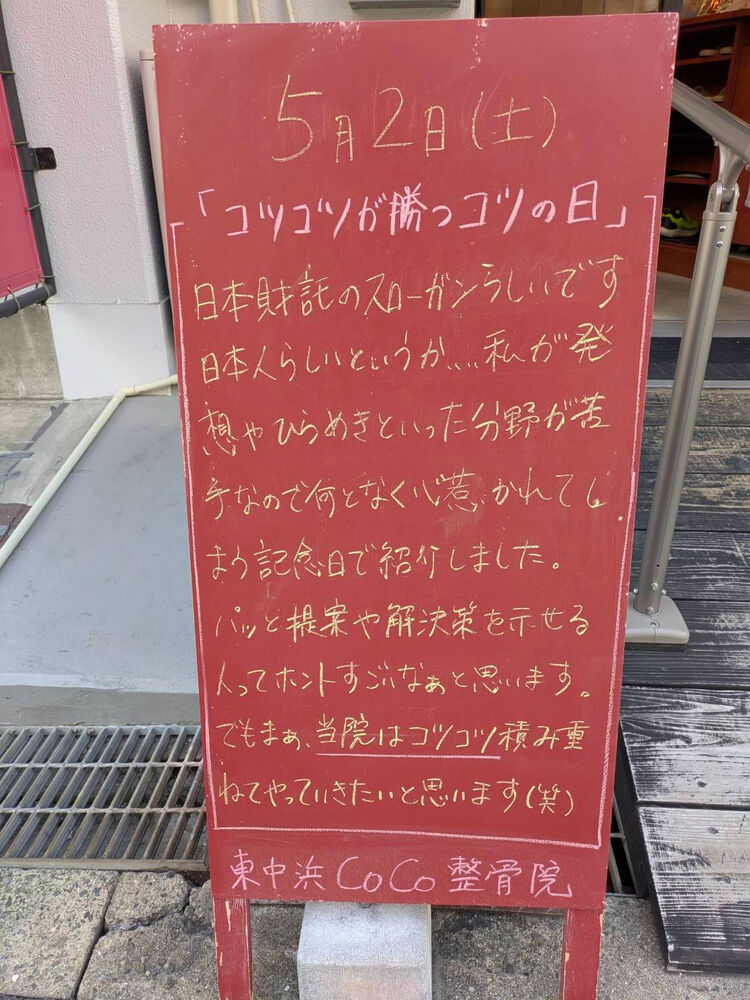 5月2日(土)
「コツコツが勝つコツの日」
日本財託のスローガンらしいです
日本人らしいというか、、、私が発
想やひらめきといった分野が苦
手なので何となく心惹かれてし
まう記念日で紹介しました。
パッと提案や解決策を示せる
人ってホントすごいなぁと思います。
でもまぁ、当院はコツコツ積み重
ねてやっていきたいと思います(笑)
東中浜CoCo整骨院